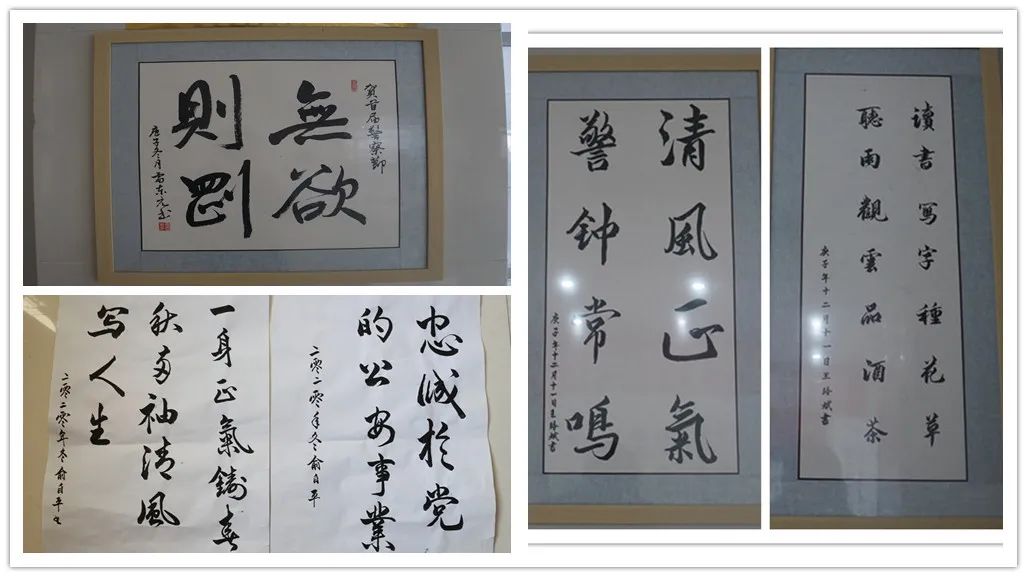 賀首届警察節
無欲
則剛
庚子冬月
忠诚於党
的公安事業
二零二零年冬俞自平
一身正氣鑄春
秋两袖清風
写人生
二零二零年冬俞自平书
清風正氣
警钟常鳴
庚子年十二月十一日王
读書写字種花草
聽雨觀雲品酒茶
庚子年十二月十一日王